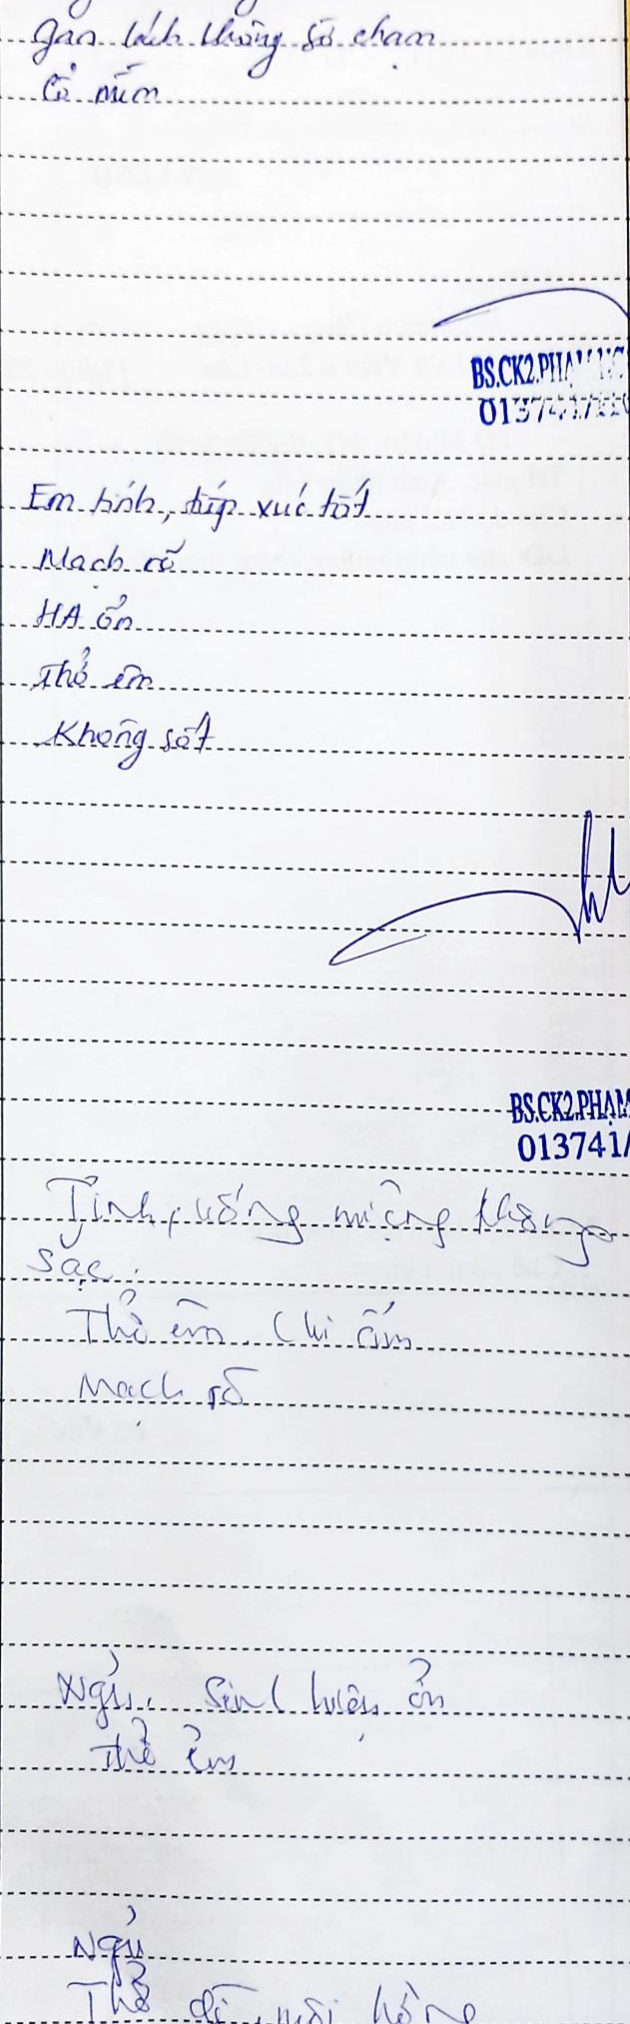 gan lách không sờ chạm
Cổ mềm
BS.CK2.PHẠM
013741/
Em tỉnh, tiếp xúc tốt
Mạch rõ
HA ổn
Thở êm
Không sốt
BS.CK2.PHẠM
013741/
Tỉnh, uống miệng không
sặc.
Thở êm. Chi ấm
Mạch rõ
Ngủ. Sinh hiệu ổn
Thở êm
Ngủ
Thở dễ, môi hồng